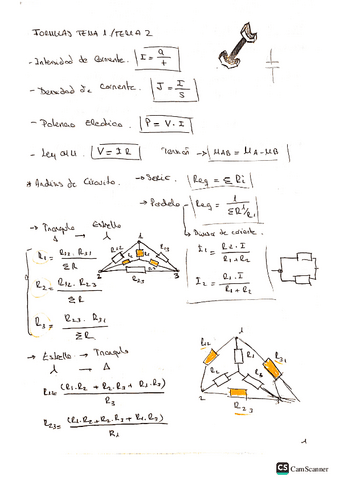 FORMULAS TEMA 1 / TEMA 2
- Intensidad de Corriente. I = Q/t
- Densidad de Corriente. J = I/S
- Potencia Electrica. P = V · I
- Ley Ohm. V = I R Tensión → μAB = μA - μB
* Analisis de Circuito. → Serie. Req = Σ Ri
→ Paralelo Req = 1/Σ 1/Ri
→ Triangulo Estrella
↳ Divisor de corriente.
R1 = R12 · R31 / ΣR
I1 = R2 · I / R1 + R2
R2 = R12 · R23 / ΣR
I2 = R1 · I / R1 + R2
R3 = R23 · R31 / ΣR
→ Estrella → Triangulo
R12 = (R1·R2 + R2·R3 + R1·R3) / R3
R23 = (R1·R2 + R2·R3 + R1·R3) / R1
1
R12
R31
R1
2
3
R23
1
CS CamScanner